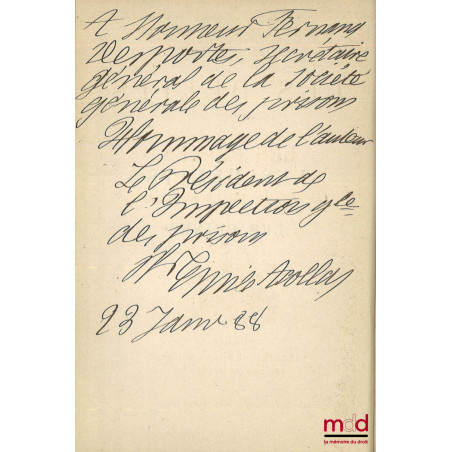 A Monsieur Fernand
Desportes, secrétaire
général de la Société
générale des prisons
Hommage de l'auteur
Le Président de
l'Inspection gle
des prisons
Emile Acollas
23 Janv 88
mdd
la mémoire du droit